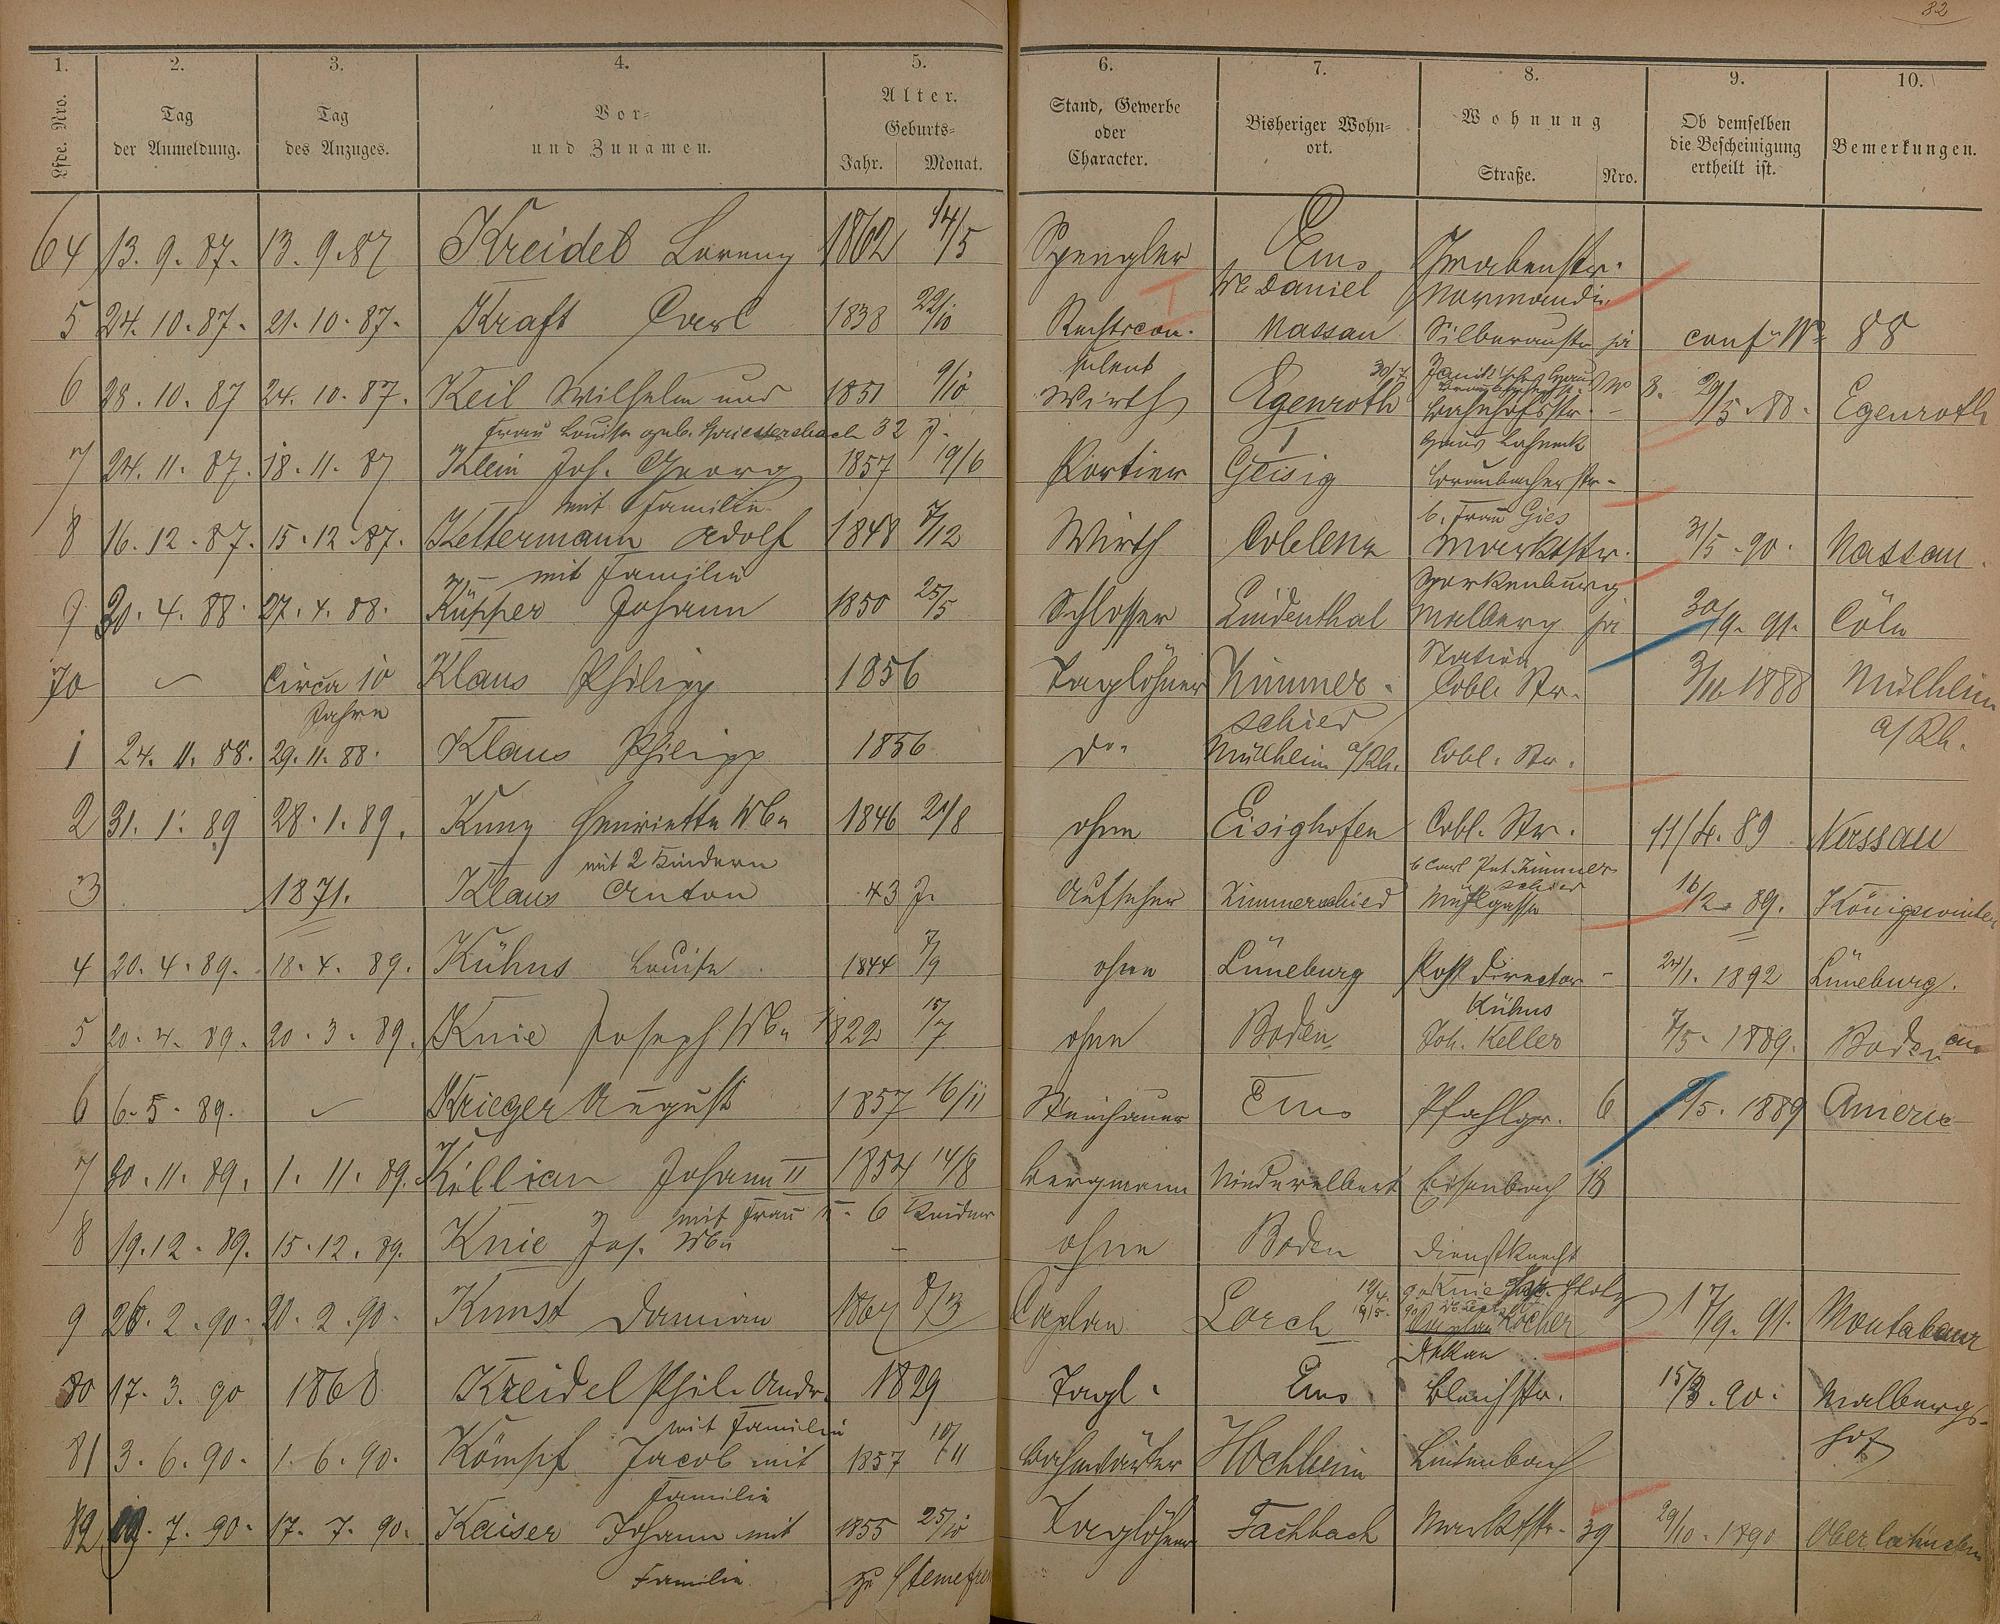 32
1. 2. 3. 4. 5. 6. 7. 8. 9. 10.
Lfde. Nro. Tag der Anmeldung. Tag des Anzuges. Vor- und Zunamen. Alter. Geburts- Jahr. Monat. Stand, Gewerbe oder Character. Bisheriger Wohn- ort. Wohnung Straße. Nro. Ob demselben die Bescheinigung ertheilt ist. Bemerkungen.
64 13. 9. 87. 13. 9. 87 Kreidel Lorenz 1862 14/5 Spengler Ems Grabenstr.
W. Daniel Normandie
5 24. 10. 87. 21. 10. 87. Kraft Carl 1838 22/10 Rechtscon- Nassau Silberaustr ja conf. No 88
sulent
6 28. 10. 87 24. 10. 87. Keil Wilhelm und 1851 9/10 Wirth Egenroth Bahnhofstr. 29/5. 88. Egenroth
Frau Louise geb. 32 J. Haus Lahneck
7 24. 11. 87. 18. 11. 87 Klein Joh. Georg 1857 19/6 Portier Geisig Braubacherstr.
mit Familie b. Frau Gies
8 16. 12. 87. 15. 12. 87. Kettermann Adolf 1848 7/12 Wirth Coblenz Marktstr. 31/5. 90. Nassau.
mit Familie Sporkenburg
9 30. 4. 88. 27. 4. 88. Küpper Johann 1850 25/5 Schlosser Lindenthal Malberg ja 30/9. 91. Cöln
Station
70 Circa 10 Klaus Philipp 1856 Taglöhner Zimmer- Cobl. Str. 3/11. 1888 Mülheim
Jahre schied a/Rh.
1 24. 11. 88. 29. 11. 88. Klaus Philipp 1856 do. Mülheim a/Rh. Cobl. Str.
2 31. 1. 89 28. 1. 89. Kunz Henriette Wwe 1846 21/8 ohne Eisighofen Cobl. Str. 11/4. 89 Nassau
mit 2 Kindern b Carl Pet. Zimmer
schied
3 1871. Klaus Anton 43 J. Aufseher Zimmerschied Mühlgasse 16/2. 89. Königswinter
4 20. 4. 89. 18. 4. 89. Kühns Louise 1844 7/9 ohne Lüneburg Post Director 24/1. 1892 Lüneburg.
Kühns
5 20. 4. 89. 20. 3. 89. Knie Joseph Wwe 1822 15/7 ohne Boden Joh. Keller 7/5. 1889. Boden
6 6. 5. 89. Krieger August 1857 16/11 Steinhauer Ems Pfahlgr. 6 9/5. 1889 Americ
7 20. 11. 89. 1. 11. 89. Killian Johann II 1854 14/8 Bergmann Niederelbert Eisenbach 18
mit Frau u. 6 Kinder
8 19. 12. 89. 15. 12. 89. Knie Jos. Wwe ohne Boden Dienstknecht
9 26. 2. 90. 20. 2. 90. Kunst Damian 1864 8/3 Caplan Lorch Kocher 17/9. 91. Montabaur
Dekan
80 17. 3. 90 1868 Kreidel Phil. Andr. 1829 Tagl. Ems Bleichstr. 15/3. 90. Malbergs-
mit Familie hof
81 3. 6. 90. 1. 6. 90. Kömpf Jacob mit 1857 10/11 Bahnwärter Hochheim Lindenbach
Familie
82 19. 7. 90. 17. 7. 90. Kaiser Johann mit 1855 25/10 Taglöhner Fachbach Marktstr. 39 29/10. 1890 Oberlahnstein
Familie zu